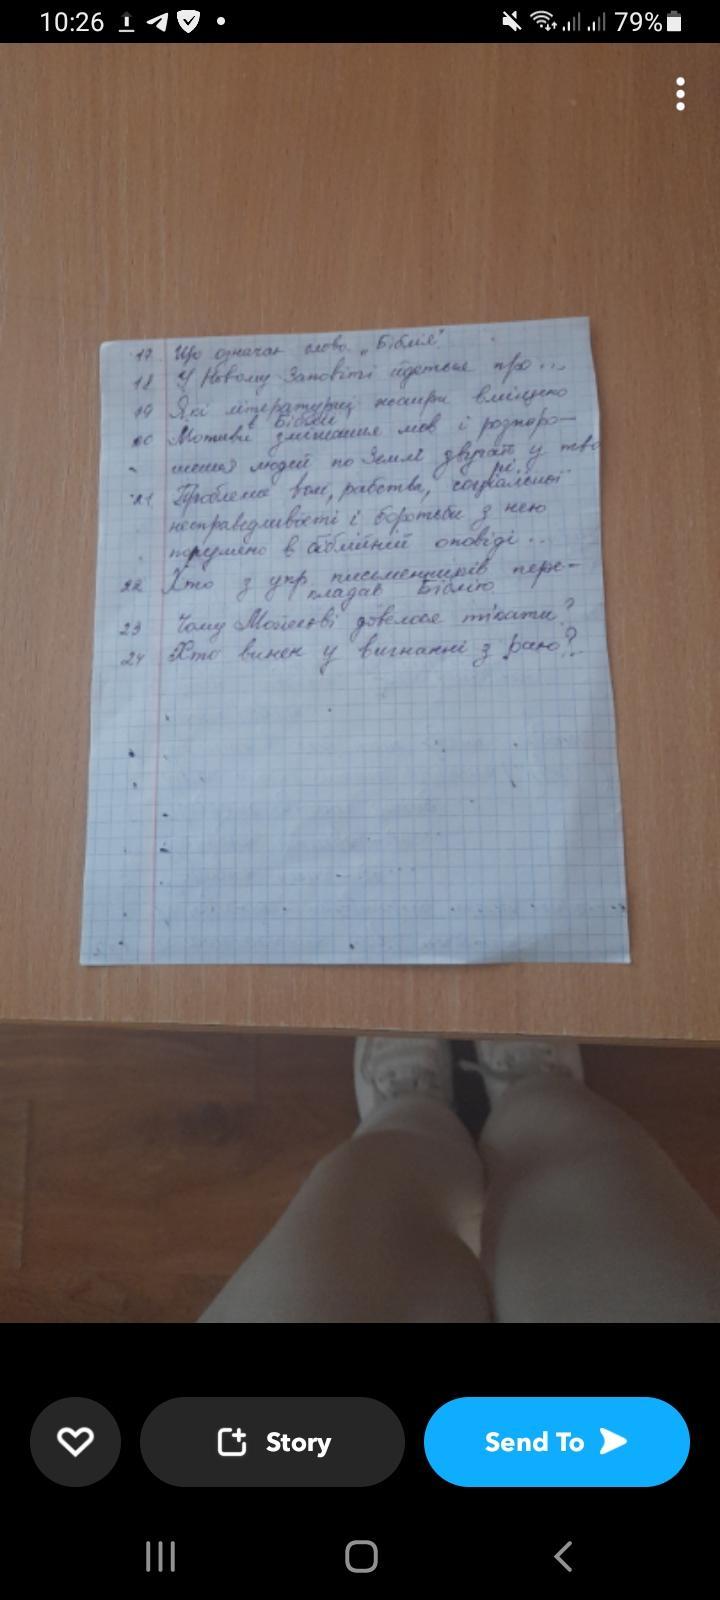 10:26
79%
17. Що означає слово „Біблія"
18 У Новому Заповіті йдеться про...
19 Які літературні жанри вміщено
в Біблії
20 Мотиви змішання мов і розпоро-
шення людей по Землі звучать у тво
рі
21 Проблема волі, рабства, соціальної
несправедливості і боротьби з нею
порушено в біблійній оповіді...
22 Хто з укр. письменників пере-
кладав Біблію
23 Чому Мойсеєві довелося тікати?
24 Хто винен у вигнанні з раю?
Story
Send To